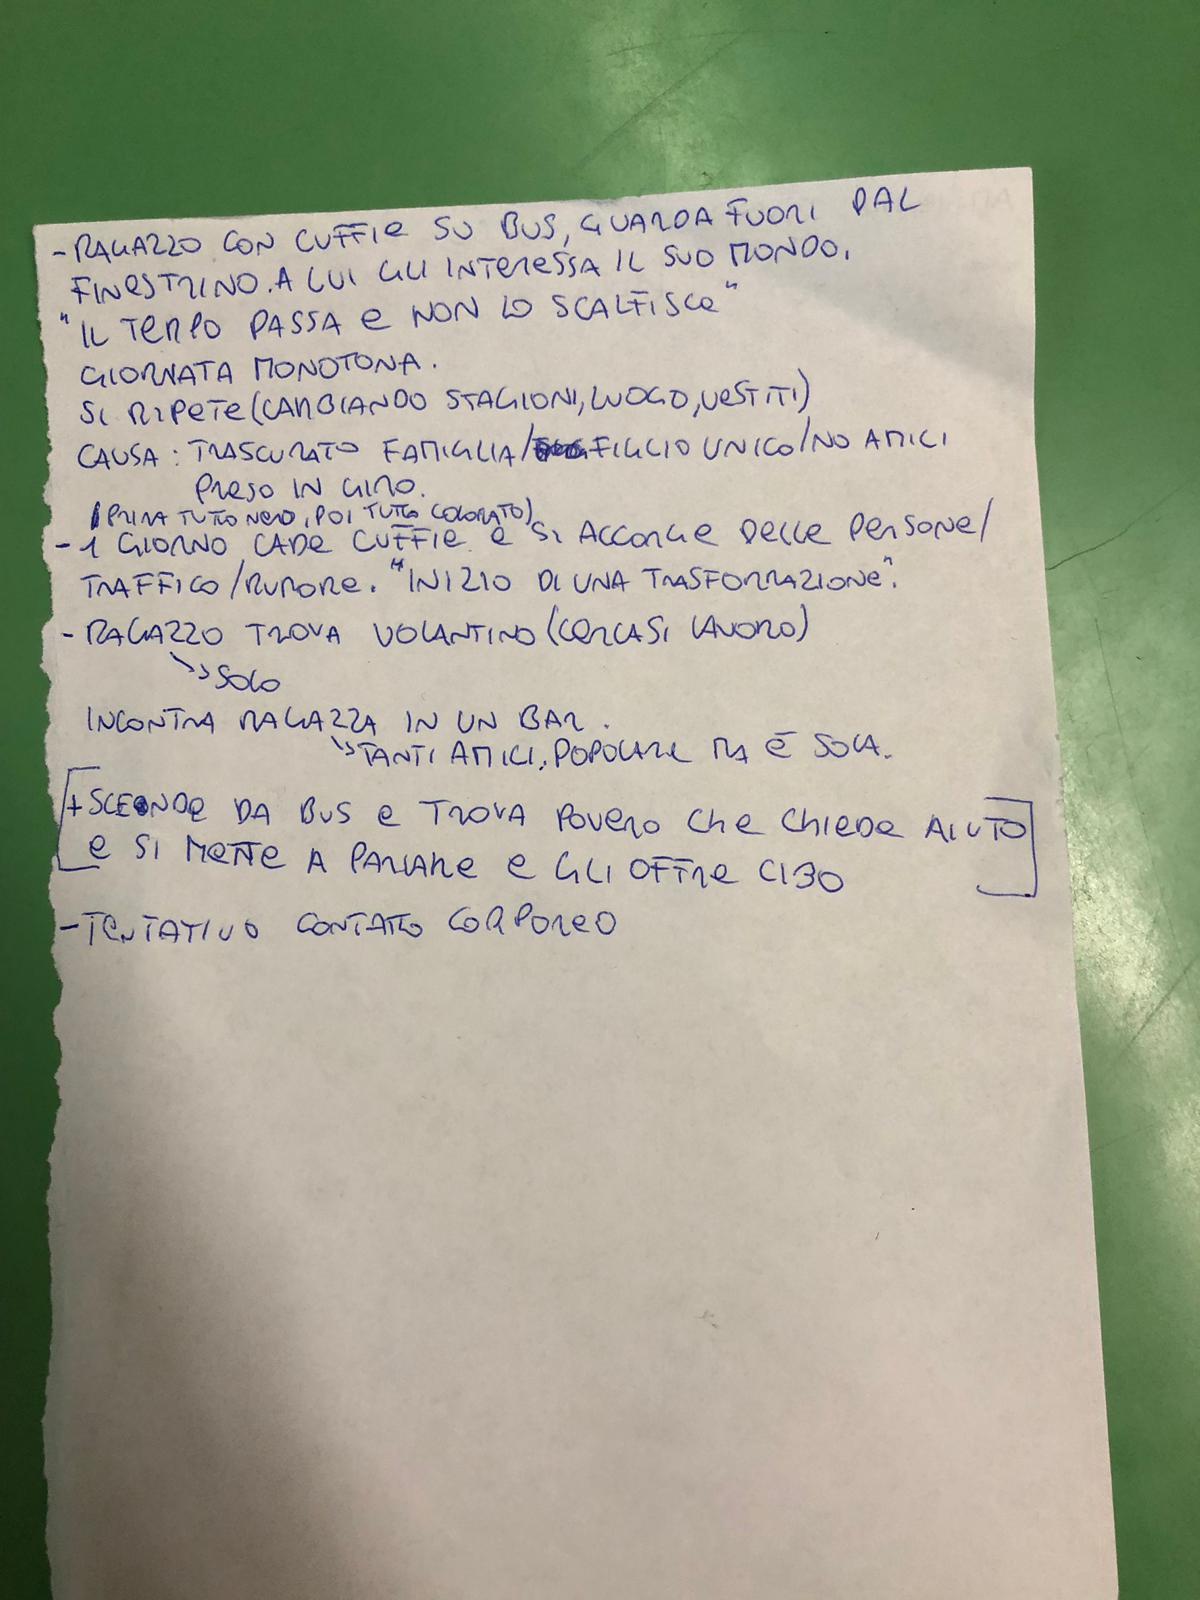 - RAGAZZO CON CUFFIE SU BUS, GUARDA FUORI DAL
FINESTRINO. A LUI GLI INTERESSA IL SUO MONDO.
"IL TEMPO PASSA E NON LO SCALFISCE"
GIORNATA MONOTONA.
SI RIPETE (CAMBIANDO STAGIONI, LUOGO, VESTITI)
CAUSA: TRASCURATO FAMIGLIA/ FIGLIO UNICO/NO AMICI
PRESO IN GIRO.
(PRIMA TUTTO NERO, POI TUTTO COLORATO)
- 1 GIORNO CADE CUFFIE E SI ACCORGE DELLE PERSONE/
TRAFFICO/RUMORE. "INIZIO DI UNA TRASFORMAZIONE".
- RAGAZZO TROVA VOLANTINO (CERCASI LAVORO)
SOLO
INCONTRA RAGAZZA IN UN BAR.
TANTI AMICI, POPOLARE MA È SOLA.
+ SCENDE DA BUS E TROVA POVERO CHE CHIEDE AIUTO
E SI METTE A PARLARE E GLI OFFRE CIBO
- TENTATIVO CONTATTO CORPOREO